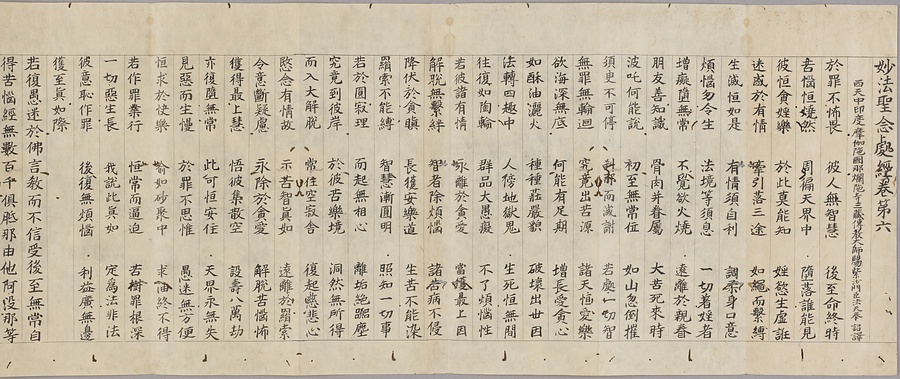 妙法聖念處經卷第六
西天中印度摩伽陀國那爛陀寺三藏傳教大師賜紫沙門臣法天奉 詔譯
於罪不怖畏 彼人無智慧 後至命終時
苦惱恒燒然 周徧天界中 墮落誰能見
彼恒貪婬樂 於此莫能知 婬慾生虛誑
迷惑於有情 牽引落三途 如繩而繫縛
生滅恒如是 有情須自利 調柔身口意
煩惱勿令生 法境等須息 一切著婬者
增癡墮無常 不覺欲火燒 遠離於親眷
朋友善知識 骨肉并眷屬 大苦死來時
波吒何能說 初至無常位 如山忽倒摧
須臾不可停 而誠謝 若處一切智
無罪無輪迴 究竟出苦源 諸天恒愛樂
欲海深無底 何能有足期 增長愛貪心
如酥油灑火 種種莊嚴貌 破壞出世因
法轉四趣中 人傍地獄鬼 生死恒無間
往復如陶輪 群品大愚癡 不了煩惱性
若彼諸有情 永離於貪愛 當獲最上因
解脫無繫絆 智者除煩惱 諸苦病不侵
降伏於貪瞋 長獲安樂道 生苦不能染
羂索不能縛 智慧漸圓明 照知一切事
若於圓寂理 而起無相心 離垢絕塵
究竟到彼岸 於彼苦樂境 洞然無所得
而入大解脫 常住空寂舍 復起慈悲心
愍念有情故 示苦智真如 遠離於羂索
令意斷疑慮 永除於貪愛 解脫苦惱怖
獲得最上慧 悟彼集散空 設壽八萬劫
亦復墮無常 此可恒安住 天界永無失
見惡而生慢 於罪不思惟 愚迷無方便
恒求於快樂 喻如砂聚中 求油終不得
若作罪業行 恒常而逼迫 苦樹罪根深
一切惡生長 我說此真如 定為法非法
彼意恥作罪 後復無煩惱 利益廣無邊
獲至真如際
若復愚迷於佛言教而不信受後至無常自
得苦惱經無數百千俱胝那由他阿那等